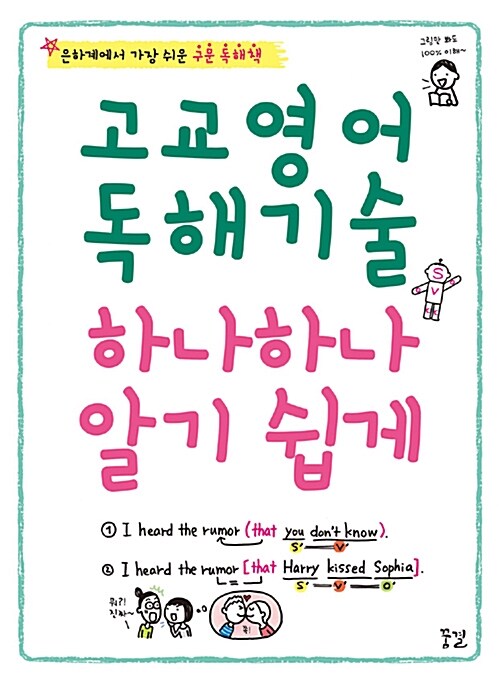 은하계에서 가장 쉬운 구문 독해책
그림만 봐도
100% 이해~
고교영어
독해기술
S
V
하나하나
알기 쉽게
① I heard the rumor (that you don't know).
S' V'
② I heard the rumor [that Harry kissed Sophia].
S' V' O'
뭐?!
진짜~
쪽!
꿈결